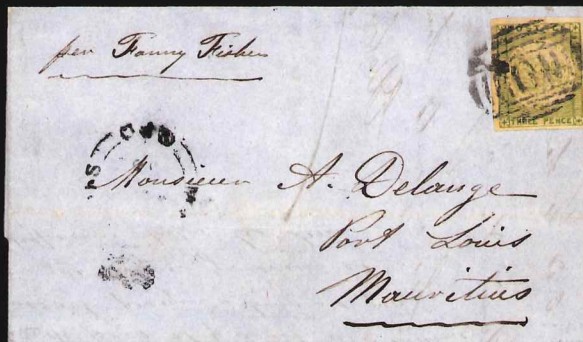 per Fanny Fisher
THREE PENCE
Monsieur A. Delange
Port Louis
Mauritius